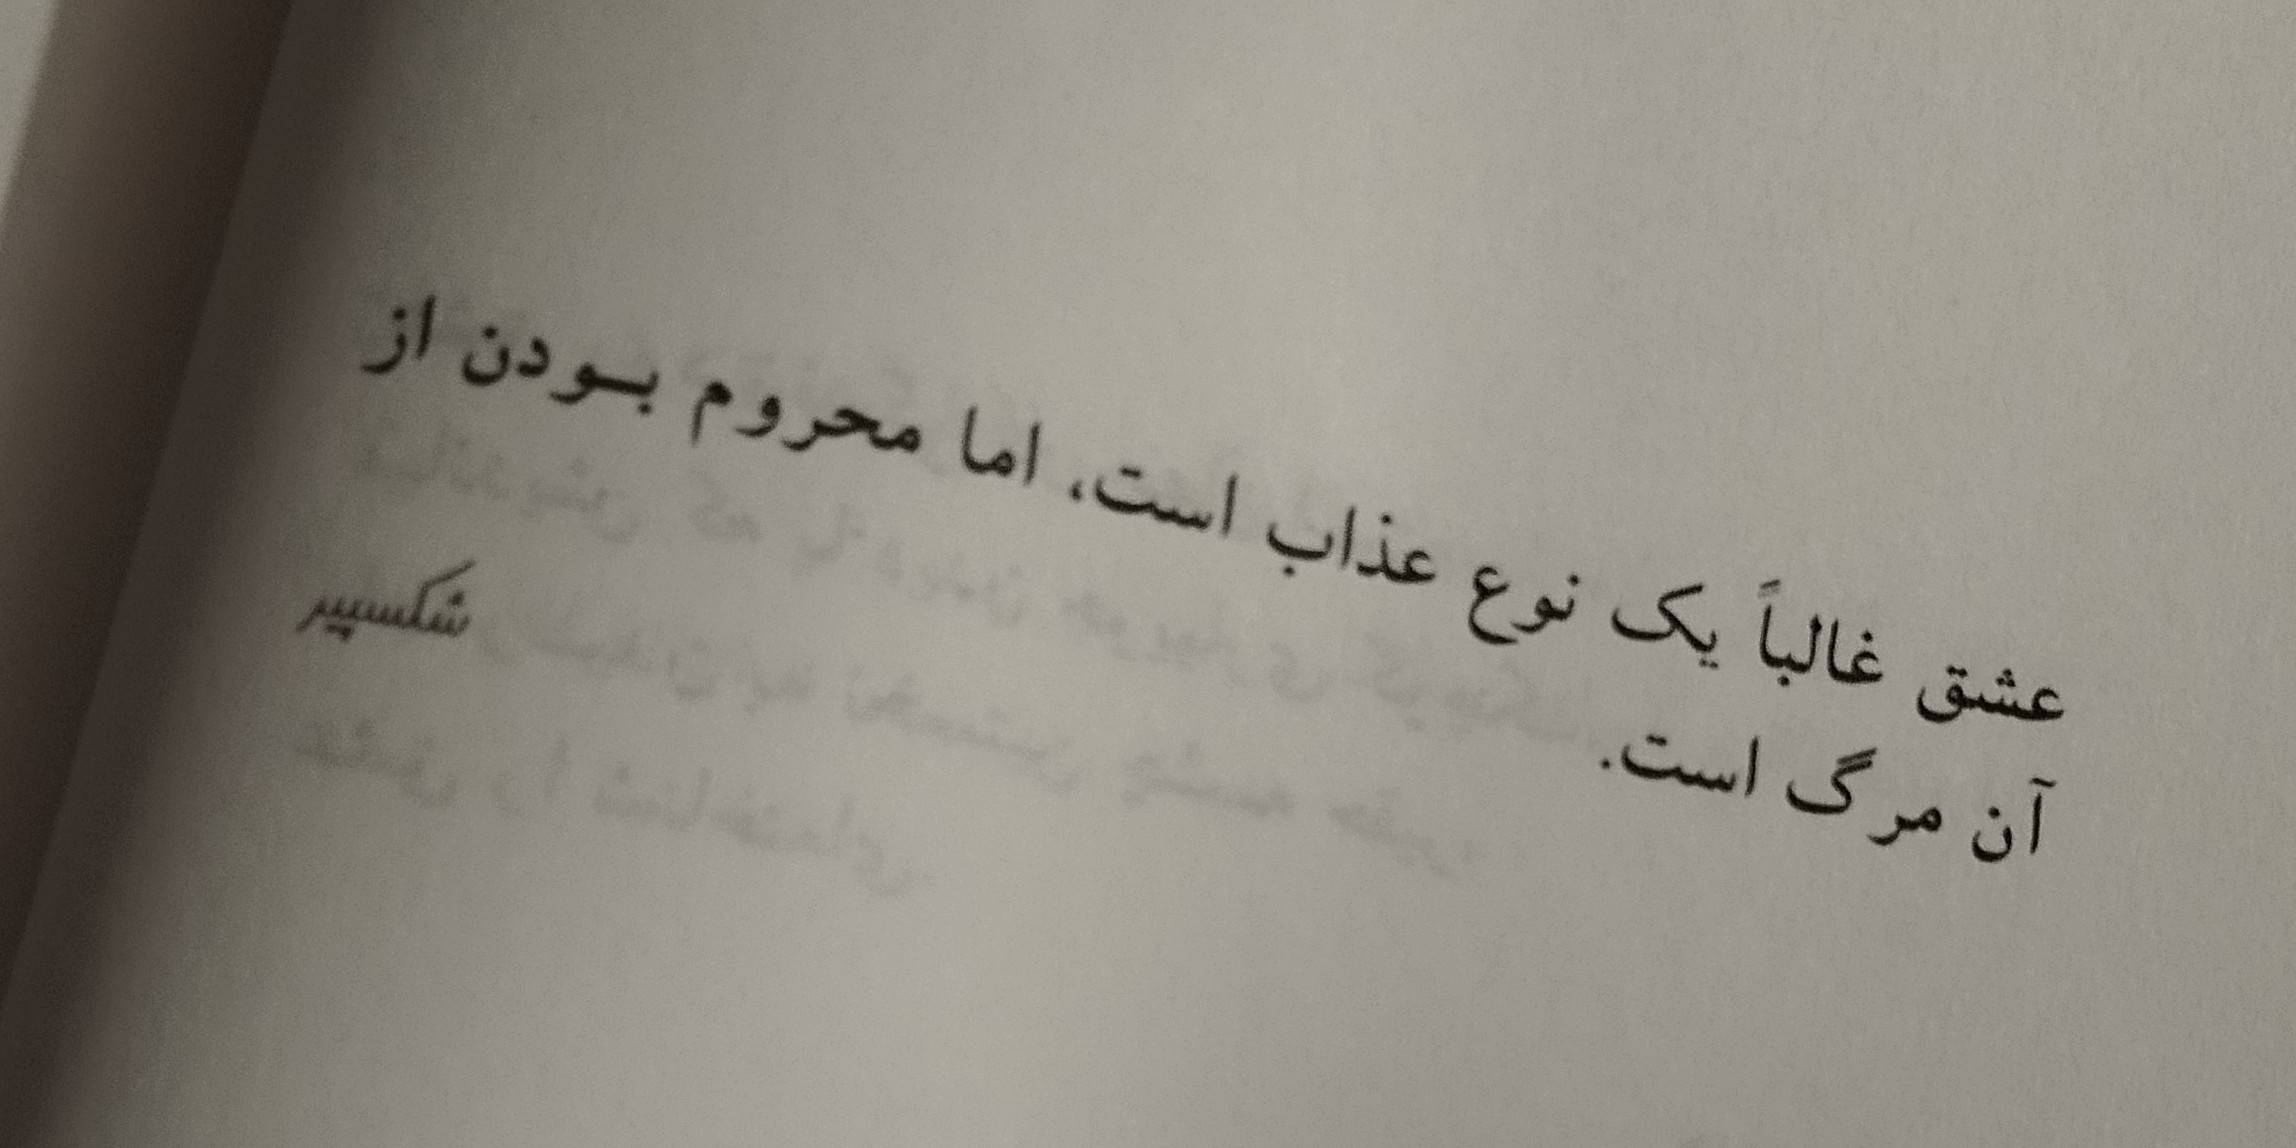 عشق غالباً یک نوع عذاب است، اما محروم بودن از
آن مرگ است.
شکسپیر